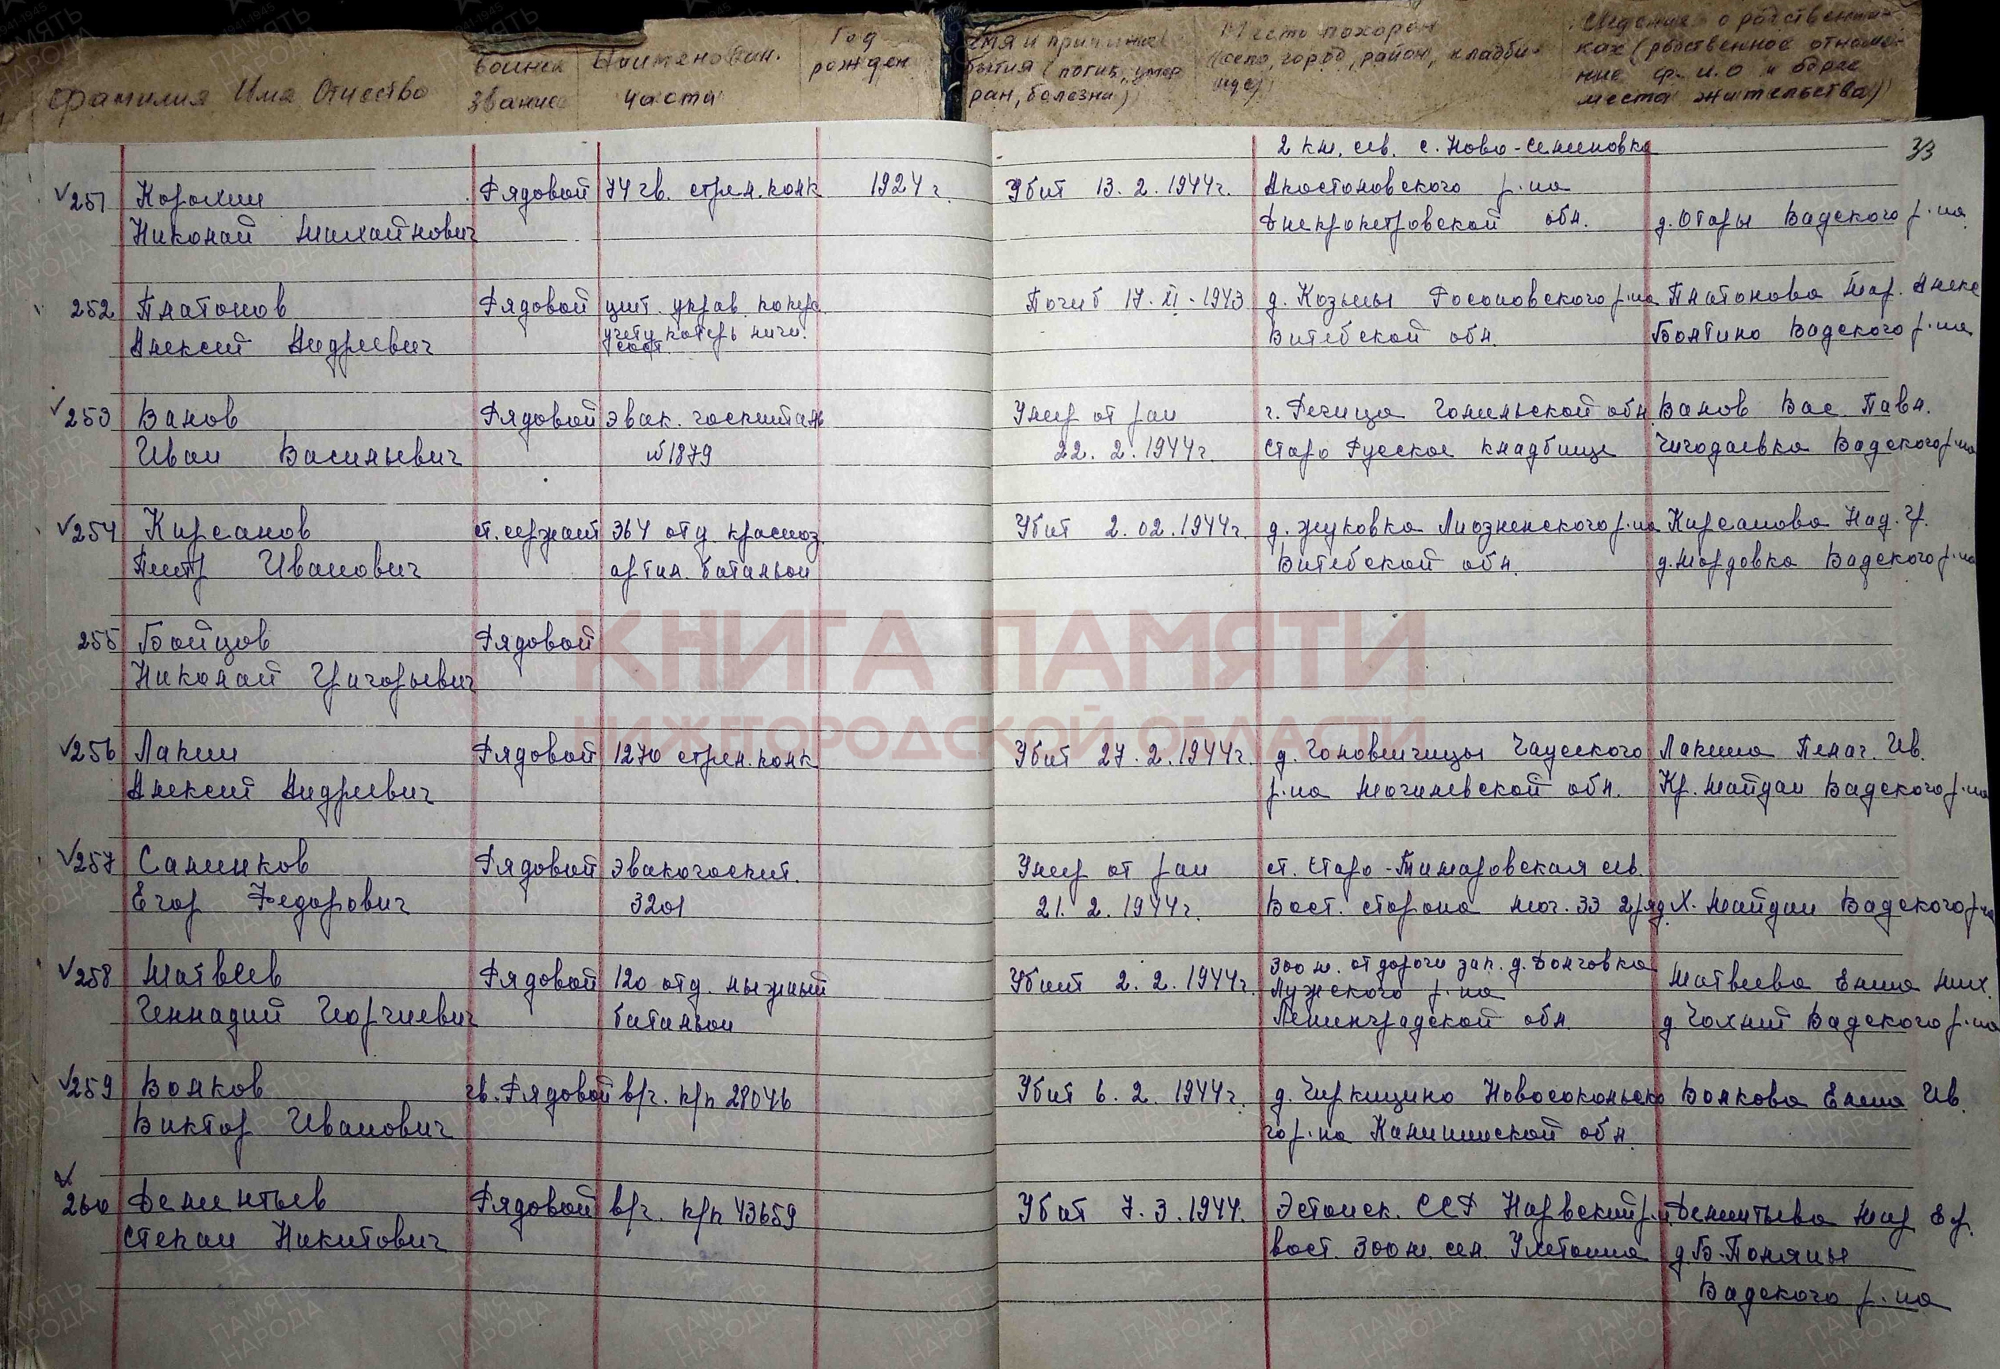 Фамилия Имя Отчество
воинск звание
Наименован. части
Год рожден
бытия (погиб, умер
ран, болезни)
Место похорон
(село, город, район, кладби-
ще)
Сведения о родственни-
ках (родственное отноше-
ние ф.и.о и адрес
места жительства)
33
2 км. сев. с. Ново-Семеновка
251 Корохин Рядовой 74 гв. стрел. полк 1924 г. Убит 13.2.1944г. Апостоловского р-на
Николай Михайлович Днепропетровской обл. д. Отары Вадского р-на
252 Платонов Рядовой цит. управ. Погиб 17.XI.1943 д. Козьяны Россоновского р-на Платонова Мар. Алекс
учету потерь
Алексей Андреевич Витебской обл. Болтино Вадского р-на
253 Ванов Рядовой эвак. госпиталь Умер от ран г. Речица Гомельской обл Ванов Вас Павл.
Иван Васильевич №1879 22.2.1944г. Старо Русское кладбище Чиргодаевка Вадского р-на
254 Кирсанов ст. сержант 364 отд. красноз. Убит 2.02.1944г. д. Жуковка Лиозненского р-на Кирсанова Над. Гр.
Петр Иванович артил. батальон Витебской обл. д. Мордовка Вадского р-на
255 Бойцов Рядовой
Николай Григорьевич
КНИГА ПАМЯТИ
НИЖЕГОРОДСКОЙ ОБЛАСТИ
256 Лакин Рядовой 1270 стрел. полк Убит 27.2.1944г. д. Головенчицы Чаусского Лакина Пелаг. Ив.
Алексей Андреевич р-на Могилевской обл. Кр. Майдан Вадского р-на
257 Саленков Рядовой эвакогоспит. Умер от ран ст. Старо-Тимаровская сев.
Егор Федорович 3201 21.2.1944г. Вост. сторона мог. 33 2 ряд Х. Майдан Вадского р-на
258 Матвеев Рядовой 120 отд. лыжный Убит 2.2.1944г. 300 м. от дороги зап. д. Долговка Матвеева Елена Мих.
Лужского р-на
Геннадий Георгиевич батальон Ленинградской обл. д. Чохлей Вадского р-на
259 Волков гв. Рядовой в/ч. п/п 28046 Убит 6.2.1944г. д. Чиркицино Новосокольско Волкова Елена Ив.
Виктор Иванович го р-на Калининской обл
260 Дементьев Рядовой в/ч. п/п 43659 Убит 7.3.1944. Эстонск. ССР Нарвский р. Дементьева Мар Ег.
Степан Никитович вост. 300 м. сел. д. Б-Поляны
Вадского р-на